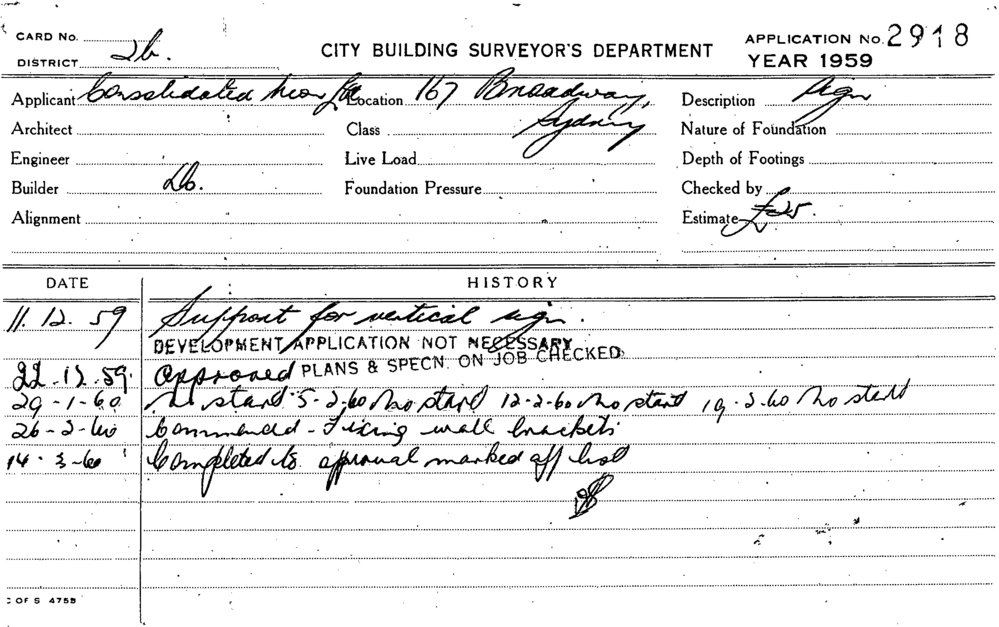 CARD No.
DISTRICT 2b.
CITY BUILDING SURVEYOR'S DEPARTMENT
APPLICATION No. 2918
YEAR 1959
Applicant Consolidated Neon Location 167 Broadway, Sydney Description Sign
Architect Class Nature of Foundation
Engineer Live Load Depth of Footings
Builder Do. Foundation Pressure Checked by
Alignment Estimate £25.
DATE HISTORY
11.12.59 Support for vertical sign.
DEVELOPMENT APPLICATION NOT NECESSARY
22.12.59. Approved PLANS & SPECN. ON JOB CHECKED.
29-1-60 No start 5-2-60 No start 12-2-60 No start 19-2-60 No start
26-2-60 Commenced - Fixing wall brackets
14-3-60 Completed to approval marked off list
C OF S 475B